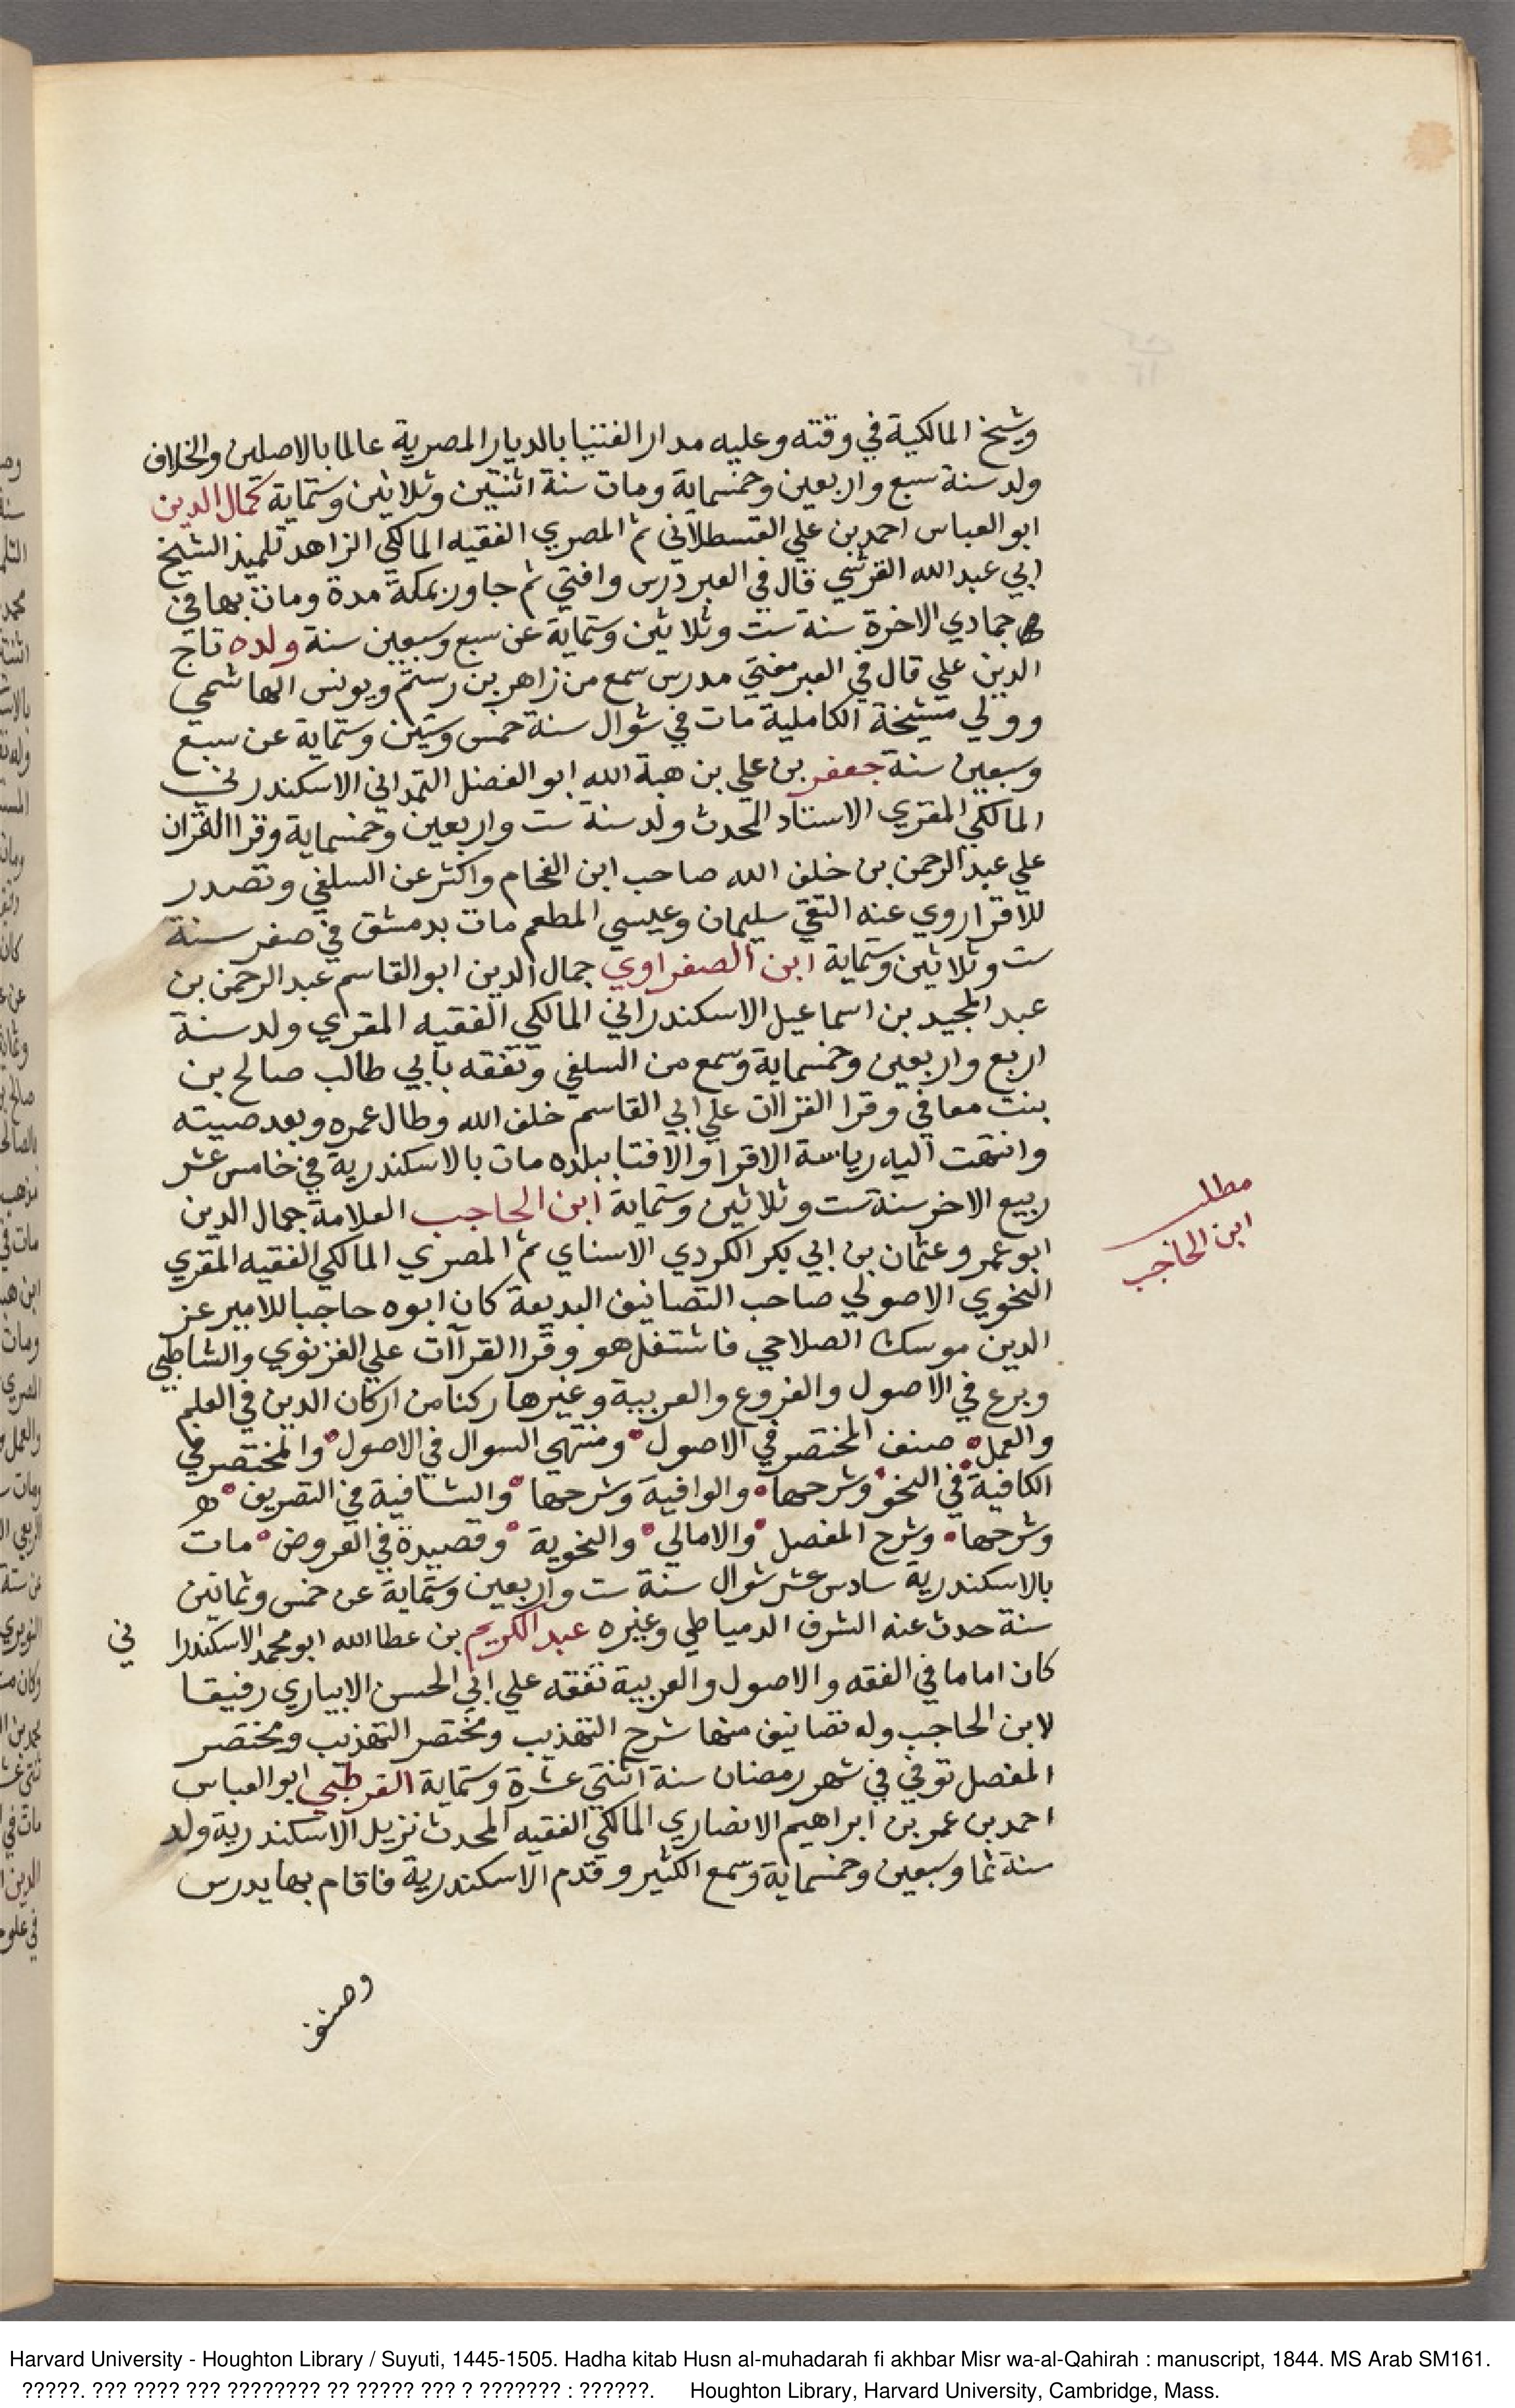 وشيخ المالكية في وقته وعليه مدار الفتيا بالديار المصرية عالما بالاصلين والخلاف
ولد سنة سبع واربعين وخمسماية ومات سنة اثنتين وثلاثين وستماية كمال الدين
ابو العباس احمد بن علي القسطلاني ثم المصري الفقيه المالكي الزاهد تلميذ الشيخ
ابي عبد الله القرشي قال في العبر درس وافتي ثم جاور بمكة مدة ومات بها في
جمادي الاخرة سنة ست وثلاثين وستماية عن سبع وسبعين سنة ولده تاج
الدين علي قال في العبر مفتي مدرس سمع من زاهر بن رستم ويونس الهاشمي
وولي مشيخة الكاملية مات في شوال سنة خمس وستين وستماية عن سبع
وسبعين سنة جعفر بن علي بن هبة الله ابو الفضل التمداني الاسكندرني
المالكي المقري الاستاد المحدث ولد سنة ست واربعين وخمسماية وقرا القران
علي عبد الرحمن بن خلف الله صاحب ابن الفخام واكثر عن السلفي وتصدر
للاقرا روي عنه التقي سليمان وعيسي المطعم مات بدمشق في صفر سنة
ست وثلاثين وستماية ابن الصفراوي جمال الدين ابو القاسم عبد الرحمن بن
عبد المجيد بن اسماعيل الاسكندراني المالكي الفقيه المقري ولد سنة
اربع واربعين وخمسماية وسمع من السلفي وتفقه بابي طالب صالح بن
بنت معافي وقرا القراات علي ابي القاسم خلف الله وطال عمره وبعد صيته
وانتهت اليه رياسة الاقرا والافتا ببلده مات بالاسكندرية في خامس عشر
ربيع الاخر سنة ست وثلاثين وستماية ابن الحاجب العلامة جمال الدين
مطلب
ابن الحاجب
ابو عمرو عثمان بن ابي بكر الكردي الاسناي ثم المصري المالكي الفقيه المقري
النحوي الاصولي صاحب التصانيف البديعة كان ابوه حاجبا للامير عز
الدين موسك الصلاحي فاشتغل هو وقرا القراآت علي الغزنوي والشاطبي
وبرع في الاصول والفروع والعربية وغيرها ركنا من اركان الدين في العلم
والعمل صنف المختصر في الاصول ومنتهي السوال في الاصول والمختصر في
الكافية في النحو وشرحها والوافية وشرحها والشافية في التصريف
وشرحها وشرح المفصل والامالي والنحوية وقصيدة في العروض مات
بالاسكندرية سادس عشر شوال سنة ست واربعين وستماية عن خمس وثمانين
سنة حدث عنه الشرف الدمياطي وغيره عبد الكريم بن عطا الله ابو محمد الاسكندرا ني
كان اماما في الفقه والاصول والعربية تفقه علي ابي الحسن الابياري رفيقا
لابن الحاجب وله تصانيف منها شرح التهذيب ومختصر التهذيب ومختصر
المفصل توفي في شهر رمضان سنة اثنتي عشرة وستماية القرطبي ابو العباس
احمد بن عمر بن ابراهيم الانصاري المالكي الفقيه المحدث نزيل الاسكندرية ولد
سنة ثما وسبعين وخمسماية وسمع الكثير وقدم الاسكندرية فاقام بها يدرس
وصنف
Harvard University - Houghton Library / Suyuti, 1445-1505. Hadha kitab Husn al-muhadarah fi akhbar Misr wa-al-Qahirah : manuscript, 1844. MS Arab SM161.
?????. ??? ???? ??? ???????? ?? ????? ??? ? ??????? : ??????. Houghton Library, Harvard University, Cambridge, Mass.